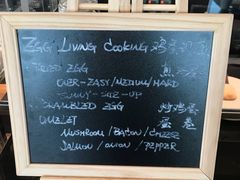 EGG LIVING COOKING 鸡蛋
FRIED EGG 煎
OVER-EASY/MEDIUM/HARD
SUNNY-SIDE-UP
SCRAMBLED EGG 炒鸡蛋
OMELET 蛋卷
MUSHROOM/BACON/CHEEZE
SALMON/ONION/PEPPER